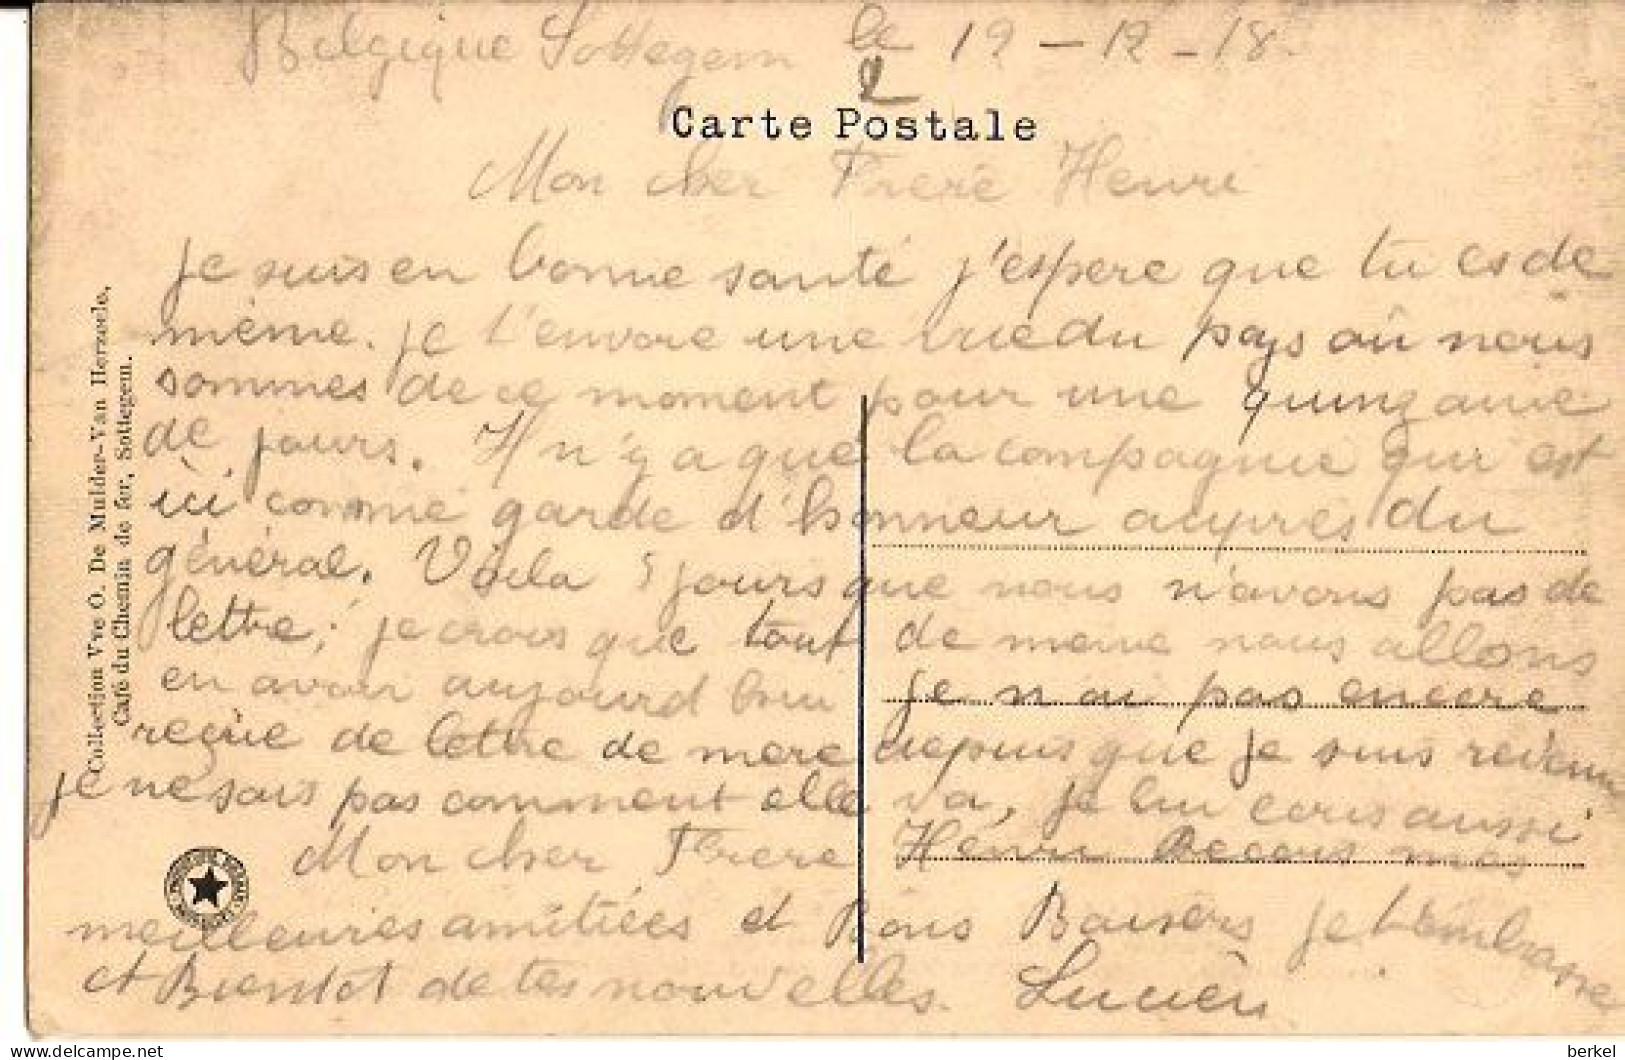 Belgique Sottegem le 19-12-18.
2
Carte Postale
Mon cher Frere Henri
je suis en bonne santé j'espere que tu es de
même. je t'envoie une vue du pays où nous
sommes de ce moment pour une quinzaine
de jours. Il n'y a que la compagnie qui est
ici comme garde d'honneur aupres du
général. Voila 5 jours que nous n'avons pas de
lettre; je crois que tout de meme nous allons
en avoir aujourd hui je n'ai pas encore
reçue de lettre de mere depuis que je suis revenu
je ne sais pas comment elle va, je lui ecris aussi
Mon cher Frere Henri Recois mes
meilleures amitiées et Bons Baisers je t'embrasse
et Bientot de tes nouvelles. Lucien
Collection Vve O. De Mulder-Van Herzeele,
Café du Chemin de fer, Sottegem.
berkel